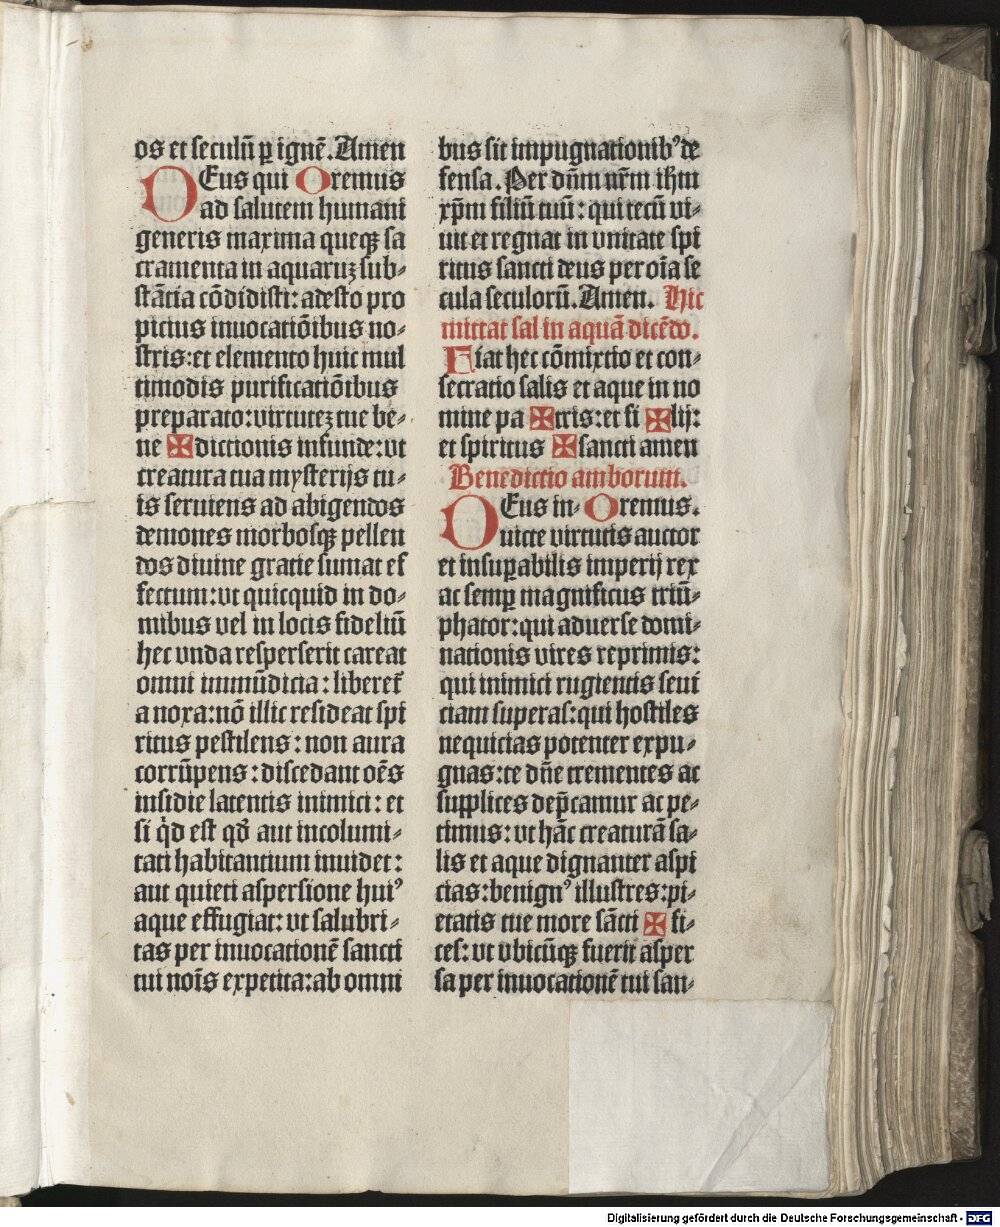 os et seculū ꝑ ignē. Amen
DEus qui Oremus
ad salutem humani
generis maxima queqꝫ sa
cramenta in aquaruꝫ sub⸗
stātia cōdidisti: adesto pro
picius inuocatiōibus no⸗
stris: et elemento huic mul
timodis purificatiōibus
preparato: virtuteꝫ tue be⸗
ne ✠ dictionis infunde: ut
creatura tua mysterijs tu⸗
is seruiens ad abigendos
demones morbosqꝫ pellen
dos diuine gratie sumat ef
fectum: vt quicquid in do⸗
mibus vel in locis fideliū
hec vnda resperserit careat
omni immūdicia: liberet᷑
a noxa: nō illic resideat spi
ritus pestilens: non aura
corrūpens: discedant oēs
insidie latentis inimici: et
si qͥd est qđ aut incolumi⸗
tati habitantium inuidet:
aut quieti aspersione huiꝰ
aque effugiat: vt salubri⸗
tas per inuocationē sancti
tui noīs expetita: ab omni
bus sit impugnationibꝰ de
fensa. Per dn̄m nr̄m ih̄m
xp̄m filiū tuū: qui tecū vi⸗
uit et regnat in vnitate spi
ritus sancti deus per oīa se
cula seculorū. Amen. Hic
mittat sal in aquā dicēdo.
Fiat hec cōmixtio et con⸗
secratio salis et aque in no
mine pa ✠ tris: et fi ✠ lij:
et spiritus ✠ sancti amen
Benedictio amborum.
DEus in⸗ Oremus.
uicte virtutis auctor
et insuꝑabilis imperij rex
ac semꝑ magnificus triū⸗
phator: qui aduerse domi⸗
nationis vires reprimis:
qui inimici rugientis seui
ciam superas: qui hostiles
nequicias potenter expu⸗
gnas: te dn̄e trementes ac
supplices dep̄camur ac pe⸗
timus: vt hāc creaturā sa⸗
lis et aque dignanter aspi
cias: benignꝰ illustres: pi⸗
etatis tue more sācti ✠ fi⸗
ces: vt vbicūqꝫ fuerit asper
sa per inuocationē tui san⸗
Digitalisierung gefördert durch die Deutsche Forschungsgemeinschaft - DFG